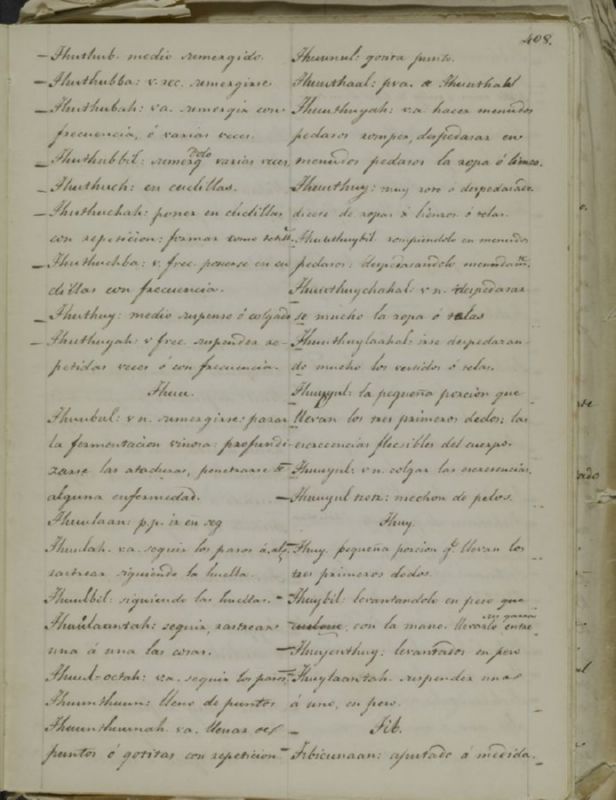 408.
Thuthub. medio sumergido.
Thuthubba: v. rec. sumergirse
Thuthubah: v.a. sumergir con
frecuencia, ó varias veces.
Thuthubbil: sumergdolo varias veces
Thuthuch: en cuclillas.
Thuthuchah: poner en cuclillas
con repeticion: formar como
Thuthuchba: v. frec. ponerse en cu
clillas con frecuencia.
Thuthuy: medio suspenso ó colgado
Thuthuyah: v frec. suspender re-
petidas veces ó con frecuencia.
Thuu.
Thuubul: v n. sumergirse: pasar
la fermentacion vinosa: profundi-
zarse las ataduras, penetrarse de
alguna enfermedad.
Thuulaan: p.p. ir en seg
Thuulah. va. seguir los pasos á alg.
rastrear siguiendo la huella.
Thuulbil: siguiendo las huellas.
Thuulaantah: seguir, rastrear
una á una las cosas.
Thuul-octah: va. seguir los pasos
Thuunthuun: lleno de puntos
Thuunthuunah va. llenar de
puntos ó gotitas con repeticion
Thuunul: gota punto.
Thuuthaal: pva. de Thuuthahl
Thuuthuyah: v.a. hacer menudos
pedasos romper, despedasar en
menudos pedasos la ropa ó lienzo.
Thuuthuy: muy roto ó despedazado
dicese de ropas ó lienzos ó telas.
Thuuthuybil rompiendolo en menudos
pedasos: despedasandolo menudamte.
Thuuthuychahal: v n. despedasar
se mucho la ropa ó telas
Thuuthuylaahal: irse despedazan-
do mucho los vestidos ó telas.
Thuuyul: la pequeña porcion que
llevan los tres primeros dedos; las
escrecencias flecsibles del cuerpo.
Thuuyul: v n. colgar las escrecencias.
Thuuyul tzotz: mechon de pelos.
Thuy.
Thuy. pequeña porcion q. llevan los
tres primeros dedos.
Thuybil: levantandolo en peso que
con la mano. llevarlo entre
Thuyenthuy: levantados en peso
Thuylaantah suspender uno
á uno, en peso.
Tib.
Tibicunaan: ajustado á medida.